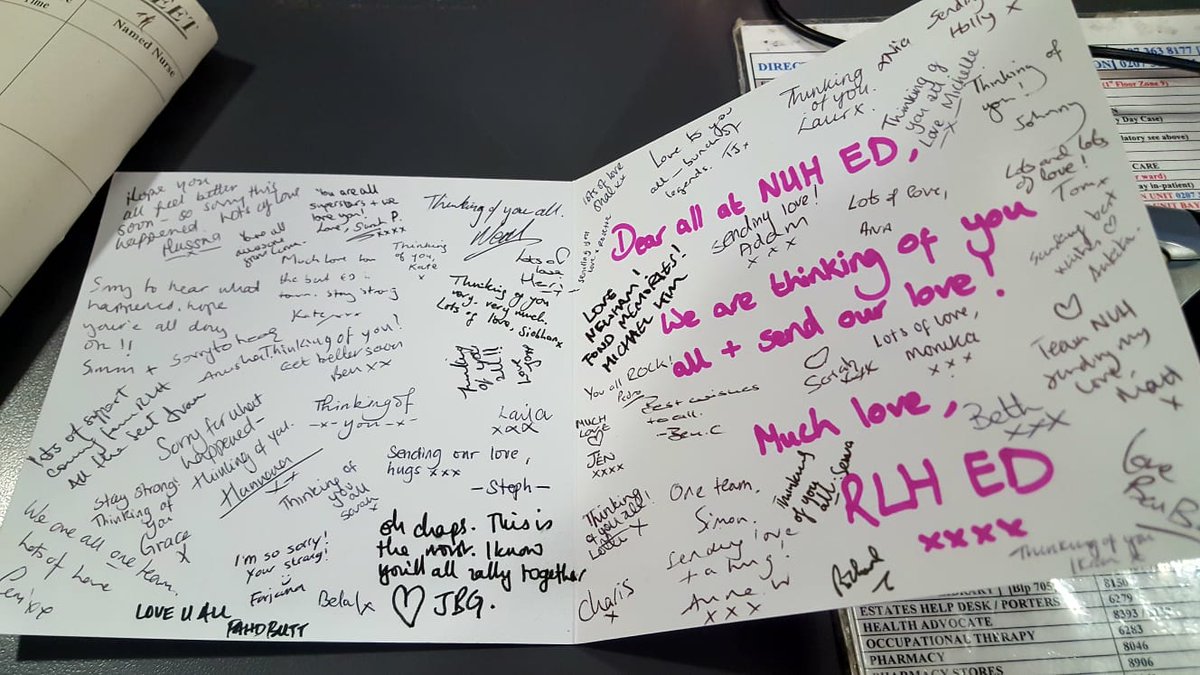 EET
Time
Named Nurse
Hope you
all feel better this
soon - so sorry this
happened. Lots of love
You are all
superstars + we
love you!
Love, Sunt P.
xxxx
Thinking of you all.
You're all
awesome
Much love
the best ED in
town. stay strong
Kate xxx
Thinking
of you,
Kate
x
Lots of
love
Sorry to hear what
happened, hope
you're all doing
ok !!
Simm x
Thinking of you
very, very much.
Lots of love, Siobhan x
Sorry to hear
Thinking of you!
Get better soon
Ben xx
Thinking
of you
all!!
Love
Lots of support
coming from RLH
All the best
Sorry for what
happened -
thinking of you.
Hannah
xx
Thinking of
-x- you -x-
Laila
xxx
Sending our love,
hugs xxx
- Steph -
Stay strong.
Thinking of
you
Grace
x
Thinking of
you all
Sarah
We are all one team.
Lots of love
xx
I'm so sorry!
Your strong!
Farjana
Belal x
oh chaps. This is
the worst. I know
you'll all rally together
♡ JBG.
LOVE U ALL
FAHD BUTT
Lots of love
xx
Love to you
all - bunch of
legends.
TJ x
Thinking
of you.
Laur x
Ania
Sending
Holly
x
Thinking of
you all
Love Michelle
x
Thinking of
you!
Johnny
Dear all at NUH ED,
We are thinking of you
all + send our love!
Much love,
RLH ED
xxxx
sending you
love
LOVE
NEWHAM!
FOND MEMORIES!
MICHAEL KIM
Sending love!
Adam
xxx
Lots of love,
Ana
Lots and lots
of love!
Tom x
Sending best
wishes ♡
Ankita
You all ROCK!
Pedro
Best wishes
to all.
- Ben. C
♡
Sarah
xxx
Lots of love,
monika
xxx
♡
Team NUH
sending my
love.
x
MUCH
LOVE
♡
JEN
xxxx
Beth
xxx
Thinking
of you all!
x
One team.
Simon.
Thinking
of you
all.
Sending love
+ a hug!
Anne
xxx
Charis
x
Richard
Love
Ben B
Thinking of you
DIRECT
0207 363 8177
(1st Floor Zone 9)
Day Case)
CARE
ward)
ay in-patient)
N UNIT 0207
UNIT BAY
8150
6279
ESTATES HELP DESK / PORTERS
8393
HEALTH ADVOCATE
6283
OCCUPATIONAL THERAPY
8046
PHARMACY
8906
PHARMACY STORES